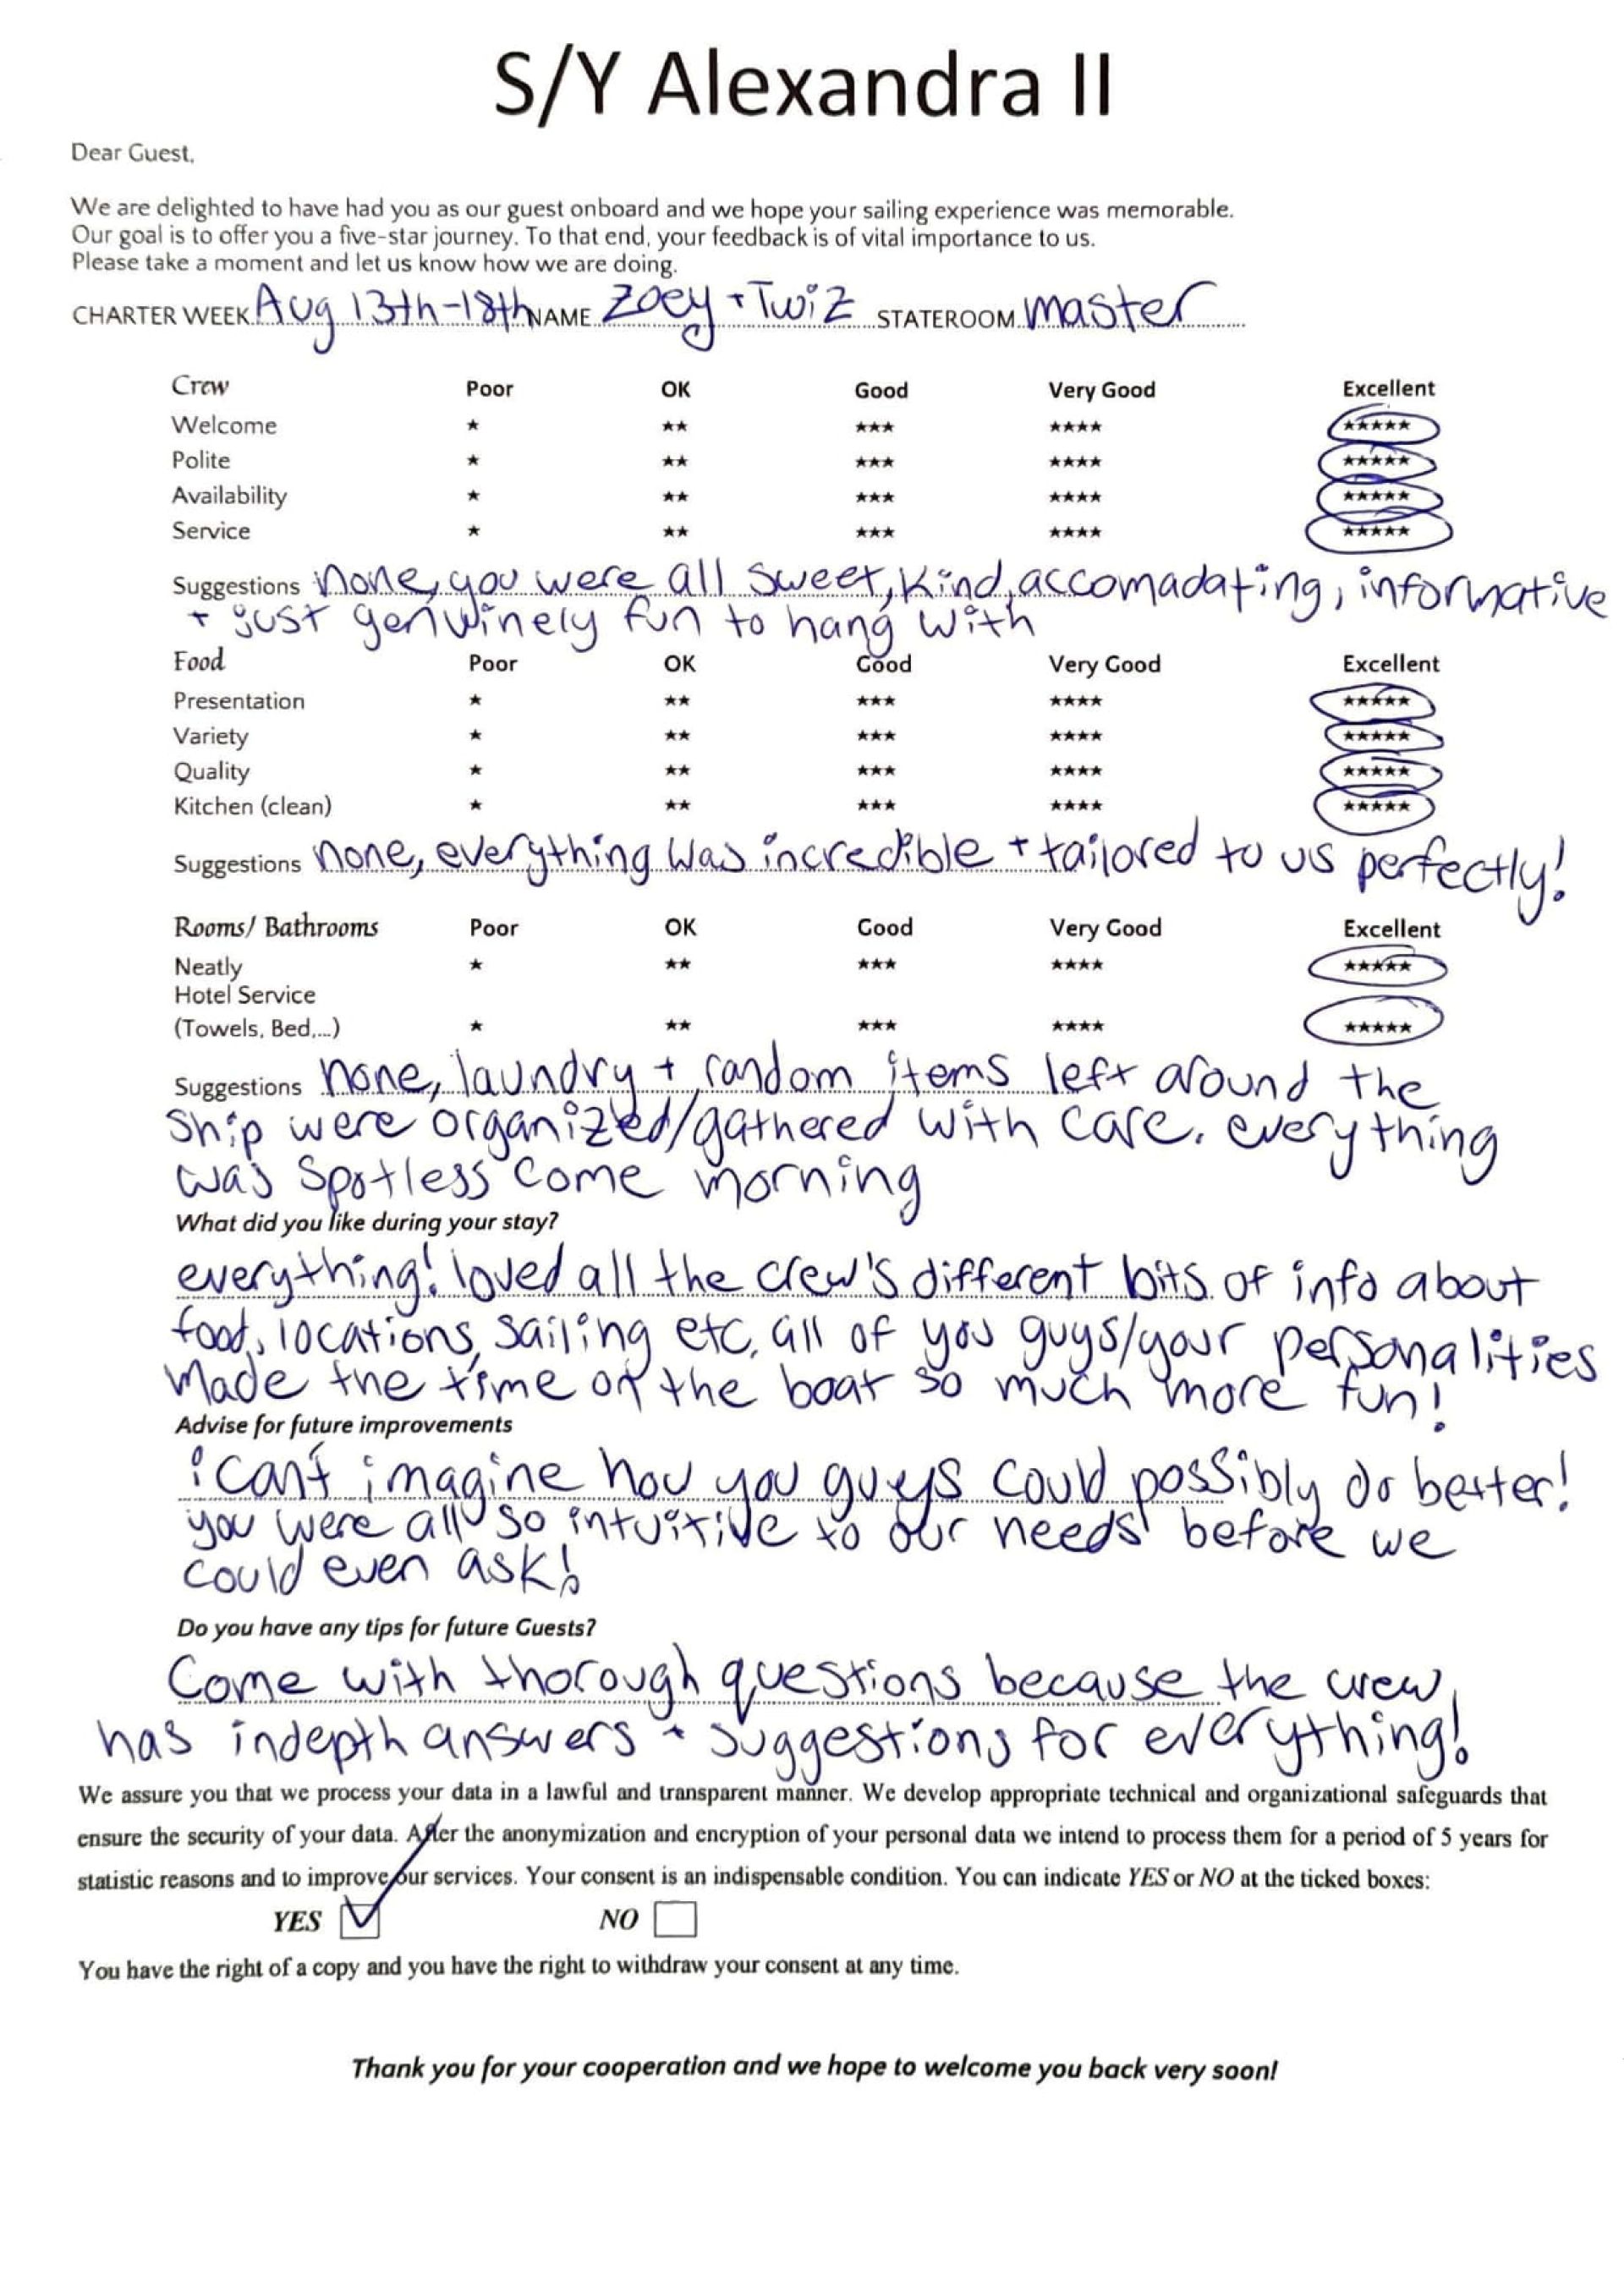 S/Y Alexandra II
Dear Guest,
We are delighted to have had you as our guest onboard and we hope your sailing experience was memorable.
Our goal is to offer you a five-star journey. To that end, your feedback is of vital importance to us.
Please take a moment and let us know how we are doing.
CHARTER WEEK Aug 13th-18th NAME Zoey + Twiz STATEROOM master
Crew Poor OK Good Very Good Excellent
Welcome ★ ★★ ★★★ ★★★★ ★★★★★
Polite ★ ★★ ★★★ ★★★★ ★★★★★
Availability ★ ★★ ★★★ ★★★★ ★★★★★
Service ★ ★★ ★★★ ★★★★ ★★★★★
Suggestions none, you were all sweet, kind, accomadating, informative
+ just genuinely fun to hang with
Food Poor OK Good Very Good Excellent
Presentation ★ ★★ ★★★ ★★★★ ★★★★★
Variety ★ ★★ ★★★ ★★★★ ★★★★★
Quality ★ ★★ ★★★ ★★★★ ★★★★★
Kitchen (clean) ★ ★★ ★★★ ★★★★ ★★★★★
Suggestions none, everything was incredible + tailored to us perfectly!
Rooms/ Bathrooms Poor OK Good Very Good Excellent
Neatly ★ ★★ ★★★ ★★★★ ★★★★★
Hotel Service
(Towels, Bed,...) ★ ★★ ★★★ ★★★★ ★★★★★
Suggestions none, laundry + random items left around the
ship were organized/gathered with care. everything
was spotless come morning
What did you like during your stay?
everything! loved all the crew's different bits of info about
food, locations, sailing etc. all of you guys/your personalities
made the time on the boat so much more fun!
Advise for future improvements
i can't imagine how you guys could possibly do better!
you were all so intuitive to our needs before we
could even ask!
Do you have any tips for future Guests?
Come with thorough questions because the crew
has indepth answers + suggestions for everything!
We assure you that we process your data in a lawful and transparent manner. We develop appropriate technical and organizational safeguards that
ensure the security of your data. After the anonymization and encryption of your personal data we intend to process them for a period of 5 years for
statistic reasons and to improve our services. Your consent is an indispensable condition. You can indicate YES or NO at the ticked boxes:
YES NO
You have the right of a copy and you have the right to withdraw your consent at any time.
Thank you for your cooperation and we hope to welcome you back very soon!